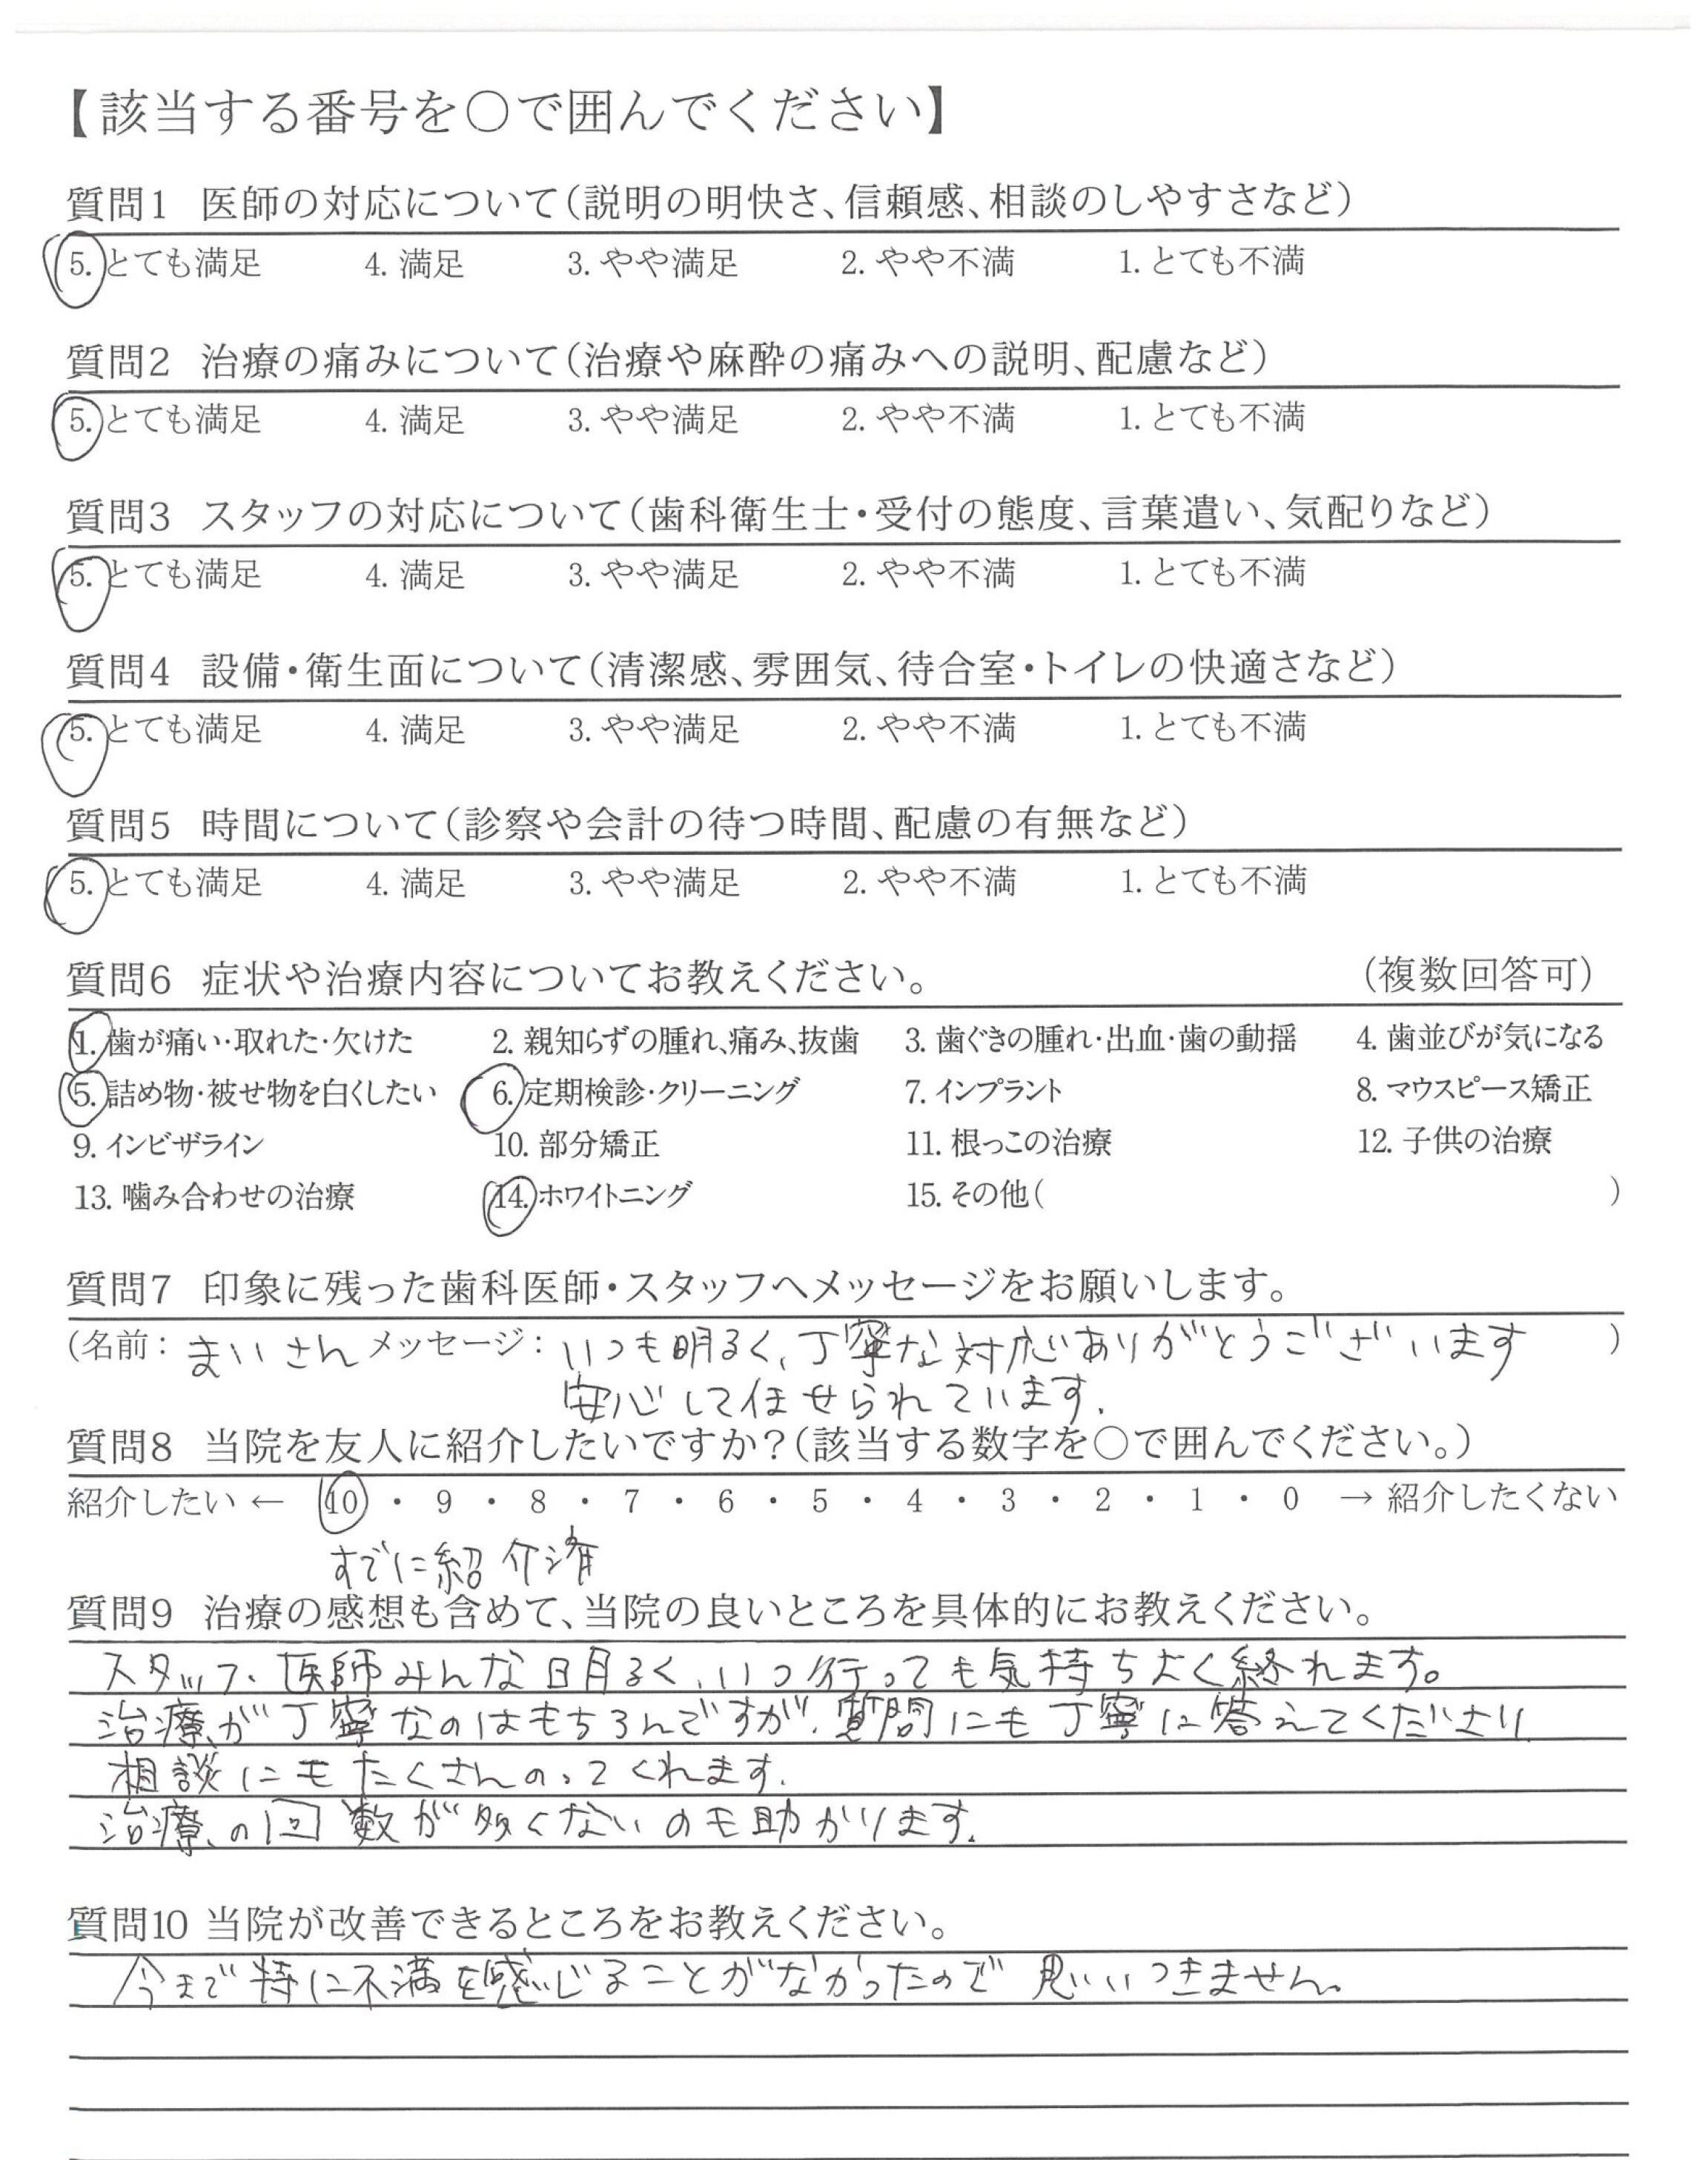 【該当する番号を○で囲んでください】
質問1 医師の対応について(説明の明快さ、信頼感、相談のしやすさなど)
5. とても満足 4. 満足 3. やや満足 2. やや不満 1. とても不満
質問2 治療の痛みについて(治療や麻酔の痛みへの説明、配慮など)
5. とても満足 4. 満足 3. やや満足 2. やや不満 1. とても不満
質問3 スタッフの対応について(歯科衛生士・受付の態度、言葉遣い、気配りなど)
5. とても満足 4. 満足 3. やや満足 2. やや不満 1. とても不満
質問4 設備・衛生面について(清潔感、雰囲気、待合室・トイレの快適さなど)
5. とても満足 4. 満足 3. やや満足 2. やや不満 1. とても不満
質問5 時間について(診察や会計の待つ時間、配慮の有無など)
5. とても満足 4. 満足 3. やや満足 2. やや不満 1. とても不満
質問6 症状や治療内容についてお教えください。 (複数回答可)
1. 歯が痛い・取れた・欠けた 2. 親知らずの腫れ、痛み、抜歯 3. 歯ぐきの腫れ・出血・歯の動揺 4. 歯並びが気になる
5. 詰め物・被せ物を白くしたい 6. 定期検診・クリーニング 7. インプラント 8. マウスピース矯正
9. インビザライン 10. 部分矯正 11. 根っこの治療 12. 子供の治療
13. 噛み合わせの治療 14. ホワイトニング 15. その他( )
質問7 印象に残った歯科医師・スタッフへメッセージをお願いします。
(名前: まいさん メッセージ: いつも明るく、丁寧な対応ありがとうございます )
安心して任せられています.
質問8 当院を友人に紹介したいですか?(該当する数字を○で囲んでください。)
紹介したい ← 10 ・ 9 ・ 8 ・ 7 ・ 6 ・ 5 ・ 4 ・ 3 ・ 2 ・ 1 ・ 0 → 紹介したくない
すでに紹介済
質問9 治療の感想も含めて、当院の良いところを具体的にお教えください。
スタッフ、医師みんな明るく、いつ行っても気持ちよく終れます。
治療が丁寧なのはもちろんですが、質問にも丁寧に答えてくださり
相談にもたくさんのってくれます.
治療の回数が多くないのも助かります.
質問10 当院が改善できるところをお教えください。
今まで特に不満を感じることがなかったので思いつきません。